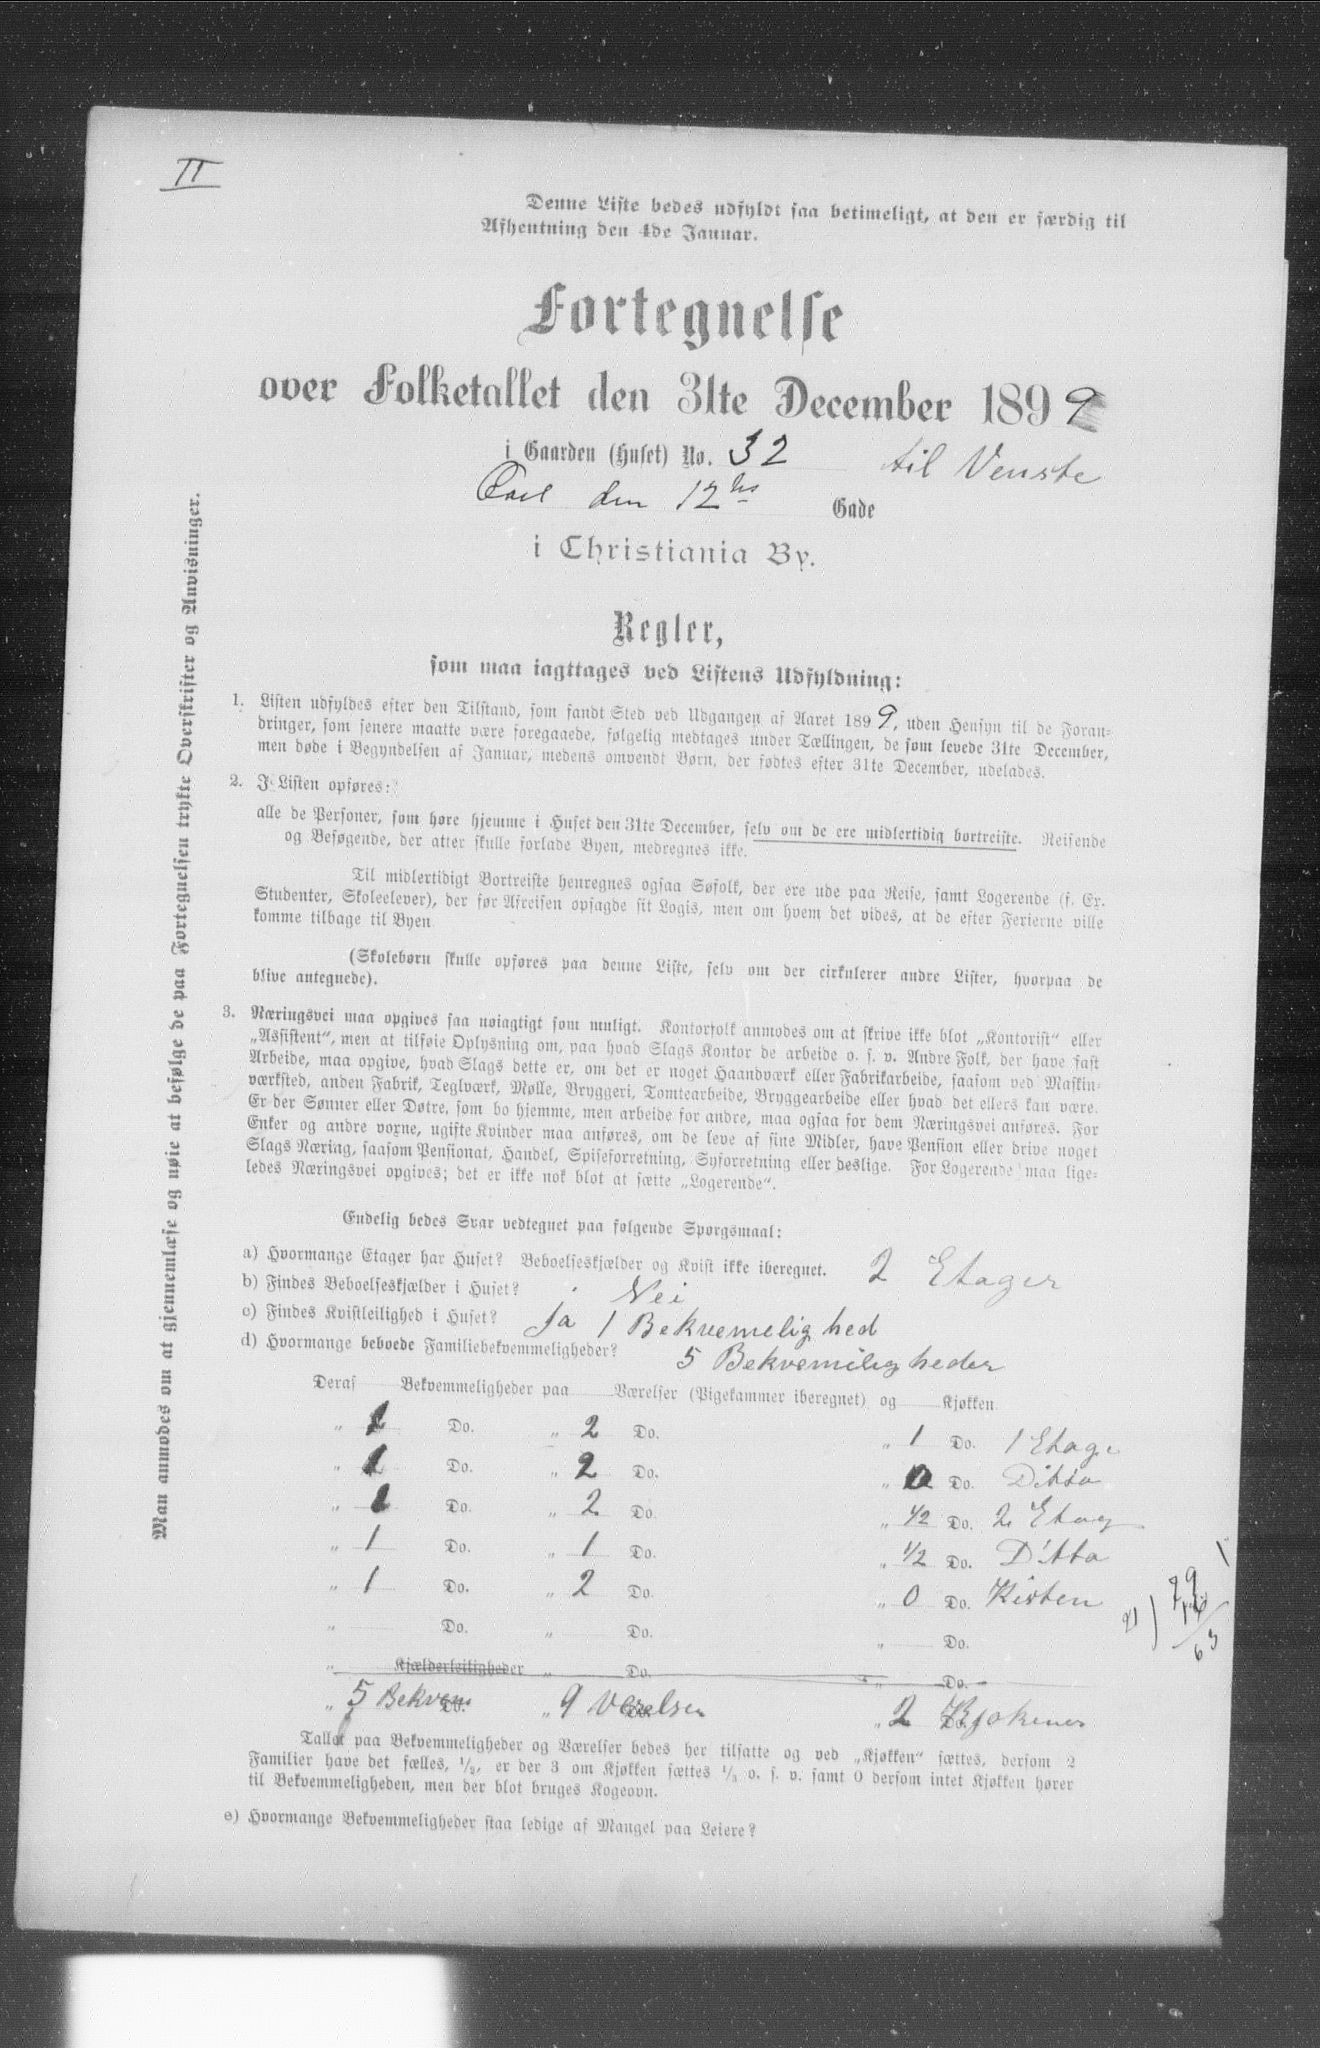 II
Denne Liste bedes udfyldt saa betimeligt, at den er færdig til
Afhentning den 4de Januar.
Fortegnelse
over Folketallet den 31te December 1899
i Gaarden (Huset) No. 32 til Venste
Carl den 12tes Gade
i Christiania By.
Regler,
som maa iagttages ved Listens Udfyldning:
1. Listen udfyldes efter den Tilstand, som fandt Sted ved Udgangen af Aaret 1899, uden Hensyn til de Foran-
dringer, som senere maatte være foregaaede, følgelig medtages under Tællingen, de som levede 31te December,
men døde i Begyndelsen af Januar, medens omvendt Børn, der fødtes efter 31te December, udelades.
2. I Listen opføres:
alle de Personer, som høre hjemme i Huset den 31te December, selv om de ere midlertidig bortreiste. Reisende
og Besøgende, der atter skulle forlade Byen, medregnes ikke.
Til midlertidigt Bortreiste henregnes ogsaa Søfolk, der ere ude paa Reise, samt Logerende (f. Ex.
Studenter, Skoleelever), der før Afreisen opsagde sit Logis, men om hvem det vides, at de efter Ferierne ville
komme tilbage til Byen
(Skolebørn skulle opføres paa denne Liste, selv om der cirkulerer andre Lister, hvorpaa de
blive antegnede).
3. Næringsvei maa opgives saa nøiagtigt som muligt. Kontorfolk anmodes om at skrive ikke blot „Kontorist“ eller
„Assistent“, men at tilføie Oplysning om, paa hvad Slags Kontor de arbeide o. s. v. Andre Folk, der have fast
Arbeide, maa opgive, hvad Slags dette er, om det er noget Haandværk eller Fabrikarbeide, saasom ved Maskin-
værksted, anden Fabrik, Teglværk, Mølle, Bryggeri, Tomtearbeide, Bryggearbeide eller hvad det ellers kan være.
Er der Sønner eller Døtre, som bo hjemme, men arbeide for andre, maa ogsaa for dem Næringsvei anføres. For
Enker og andre voxne, ugifte Kvinder maa anføres, om de leve af sine Midler, have Pension eller drive noget
Slags Næring, saasom Pensionat, Handel, Spiseforretning, Syforretning eller deslige. For Logerende maa lige-
ledes Næringsvei opgives; det er ikke nok blot at sætte „Logerende“.
Endelig bedes Svar vedtegnet paa følgende Spørgsmaal:
a) Hvormange Etager har Huset? Beboelseskjælder og Kvist ikke iberegnet. 2 Etager
b) Findes Beboelseskjælder i Huset? Nei
c) Findes Kvistleilighed i Huset? ja 1 Bekvemelighed
d) Hvormange beboede Familiebekvemmeligheder? 5 Bekvemeligheder
Deraf Bekvemmeligheder paa Værelser (Pigekammer iberegnet) og Kjøkken
„ 1 Do. „ 2 Do. „ 1 Do. 1 Etage
„ 1 Do. „ 2 Do. „ 0 Do. Ditto
„ 1 Do. „ 2 Do. „ 1/2 Do. 2 Etag
„ 1 Do. „ 1 Do. „ 1/2 Do. Ditto
„ 1 Do. „ 2 Do. „ 0 Do. Kisten
„ Do. „ Do. „ Do.
„ Kjælderleiligheder „ Do. „ Do.
„ 5 Bekvem Do. „ 9 Værelsen Do. „ 2 Kjøkener Do.
Tallet paa Bekvemmeligheder og Værelser bedes her tilsatte og ved „Kjøkken“ sættes, dersom 2
Familier have det fælles, 1/2, er der 3 om Kjøkken sættes 1/3 o. s. v. samt 0 dersom intet Kjøkken hører
til Bekvemmeligheden, men der blot bruges Kogeovn.
e) Hvormange Bekvemmeligheder staa ledige af Mangel paa Leiere?
Man anmodes om at gjennemlæse og nøie at befølge de paa Fortegnelsen trykte Overskrifter og Anvisninger.